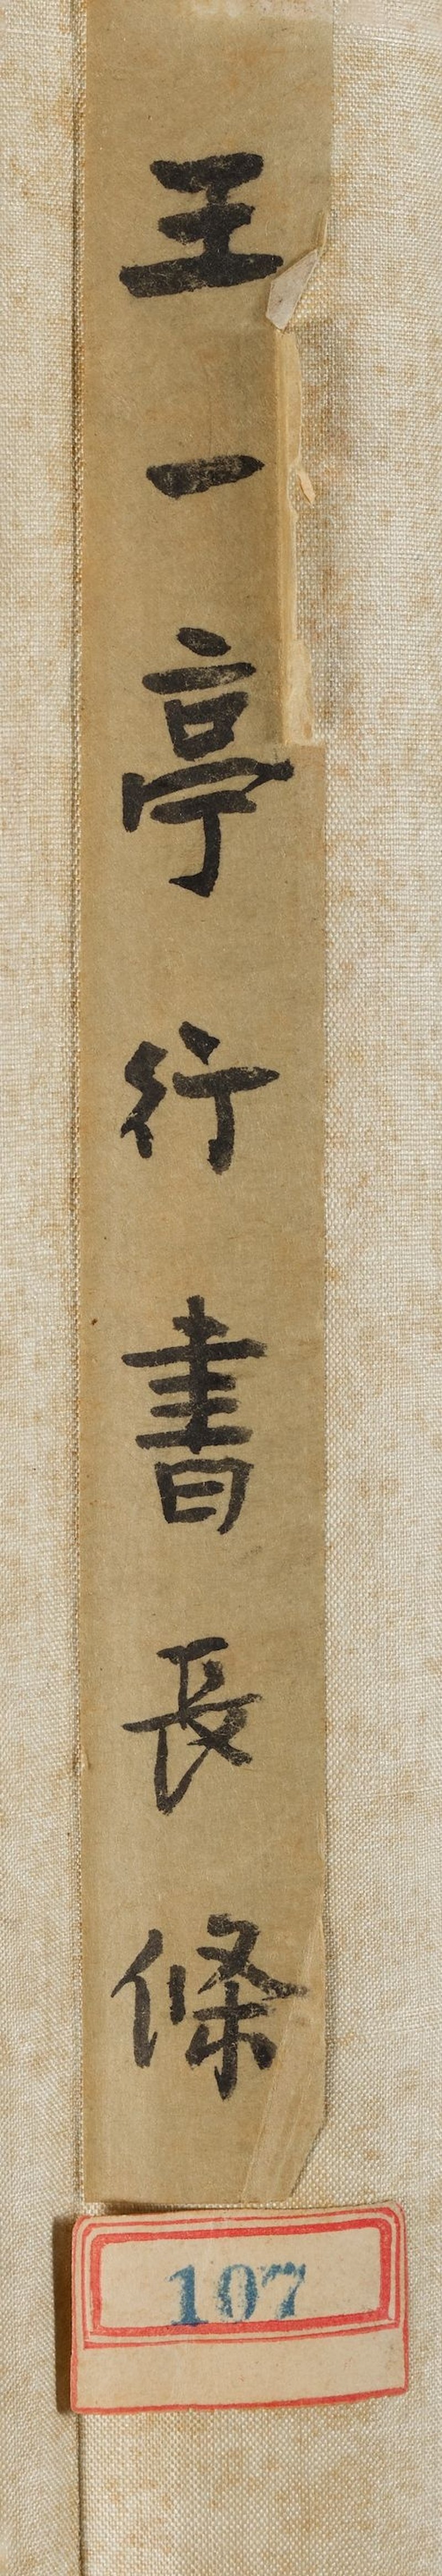 王一亭行書長條
107